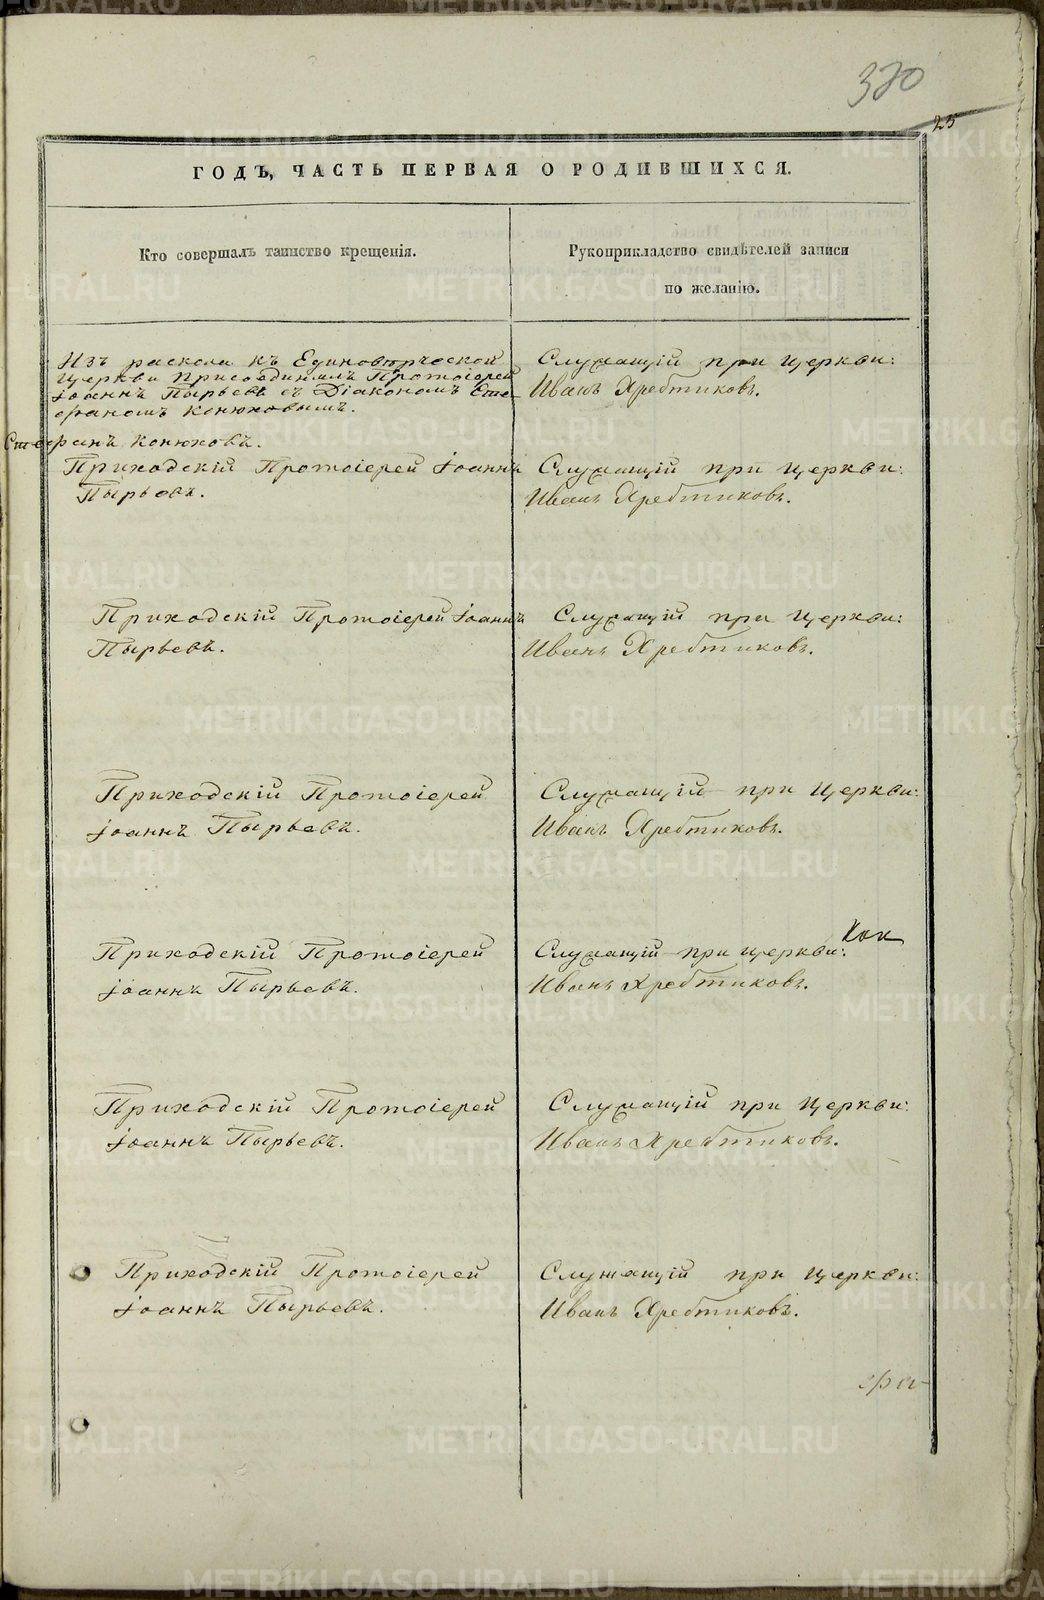 370
25
ГОДЪ, ЧАСТЬ ПЕРВАЯ О РОДИВШИХСЯ.
Кто совершалъ таинство крещенія.
Рукоприкладство свидѣтелей записи
по желанію.
Изъ раскола къ Единовѣрческой
Церкви присоединилъ Протоіерей
Іоаннъ Пырьевъ съ Діакономъ Сте-
фаномъ Конюховымъ.
Стефанъ Конюховъ.
Служащій при Церкви:
Иванъ Хребтиковъ.
Приходскій Протоіерей Іоаннъ
Пырьевъ.
Служащій при Церкви:
Иванъ Хребтиковъ.
Приходскій Протоіерей Іоаннъ
Пырьевъ.
Служащій при Церкви:
Иванъ Хребтиковъ.
Приходскій Протоіерей
Іоаннъ Пырьевъ.
Служащій при Церкви:
Иванъ Хребтиковъ.
Приходскій Протоіерей
Іоаннъ Пырьевъ.
Служащій при Церкви:
Иванъ Хребтиковъ.
Приходскій Протоіерей
Іоаннъ Пырьевъ.
Служащій при Церкви:
Иванъ Хребтиковъ.
Приходскій Протоіерей
Іоаннъ Пырьевъ.
Служащій при Церкви:
Иванъ Хребтиковъ.
METRIKI.GASO-URAL.RU